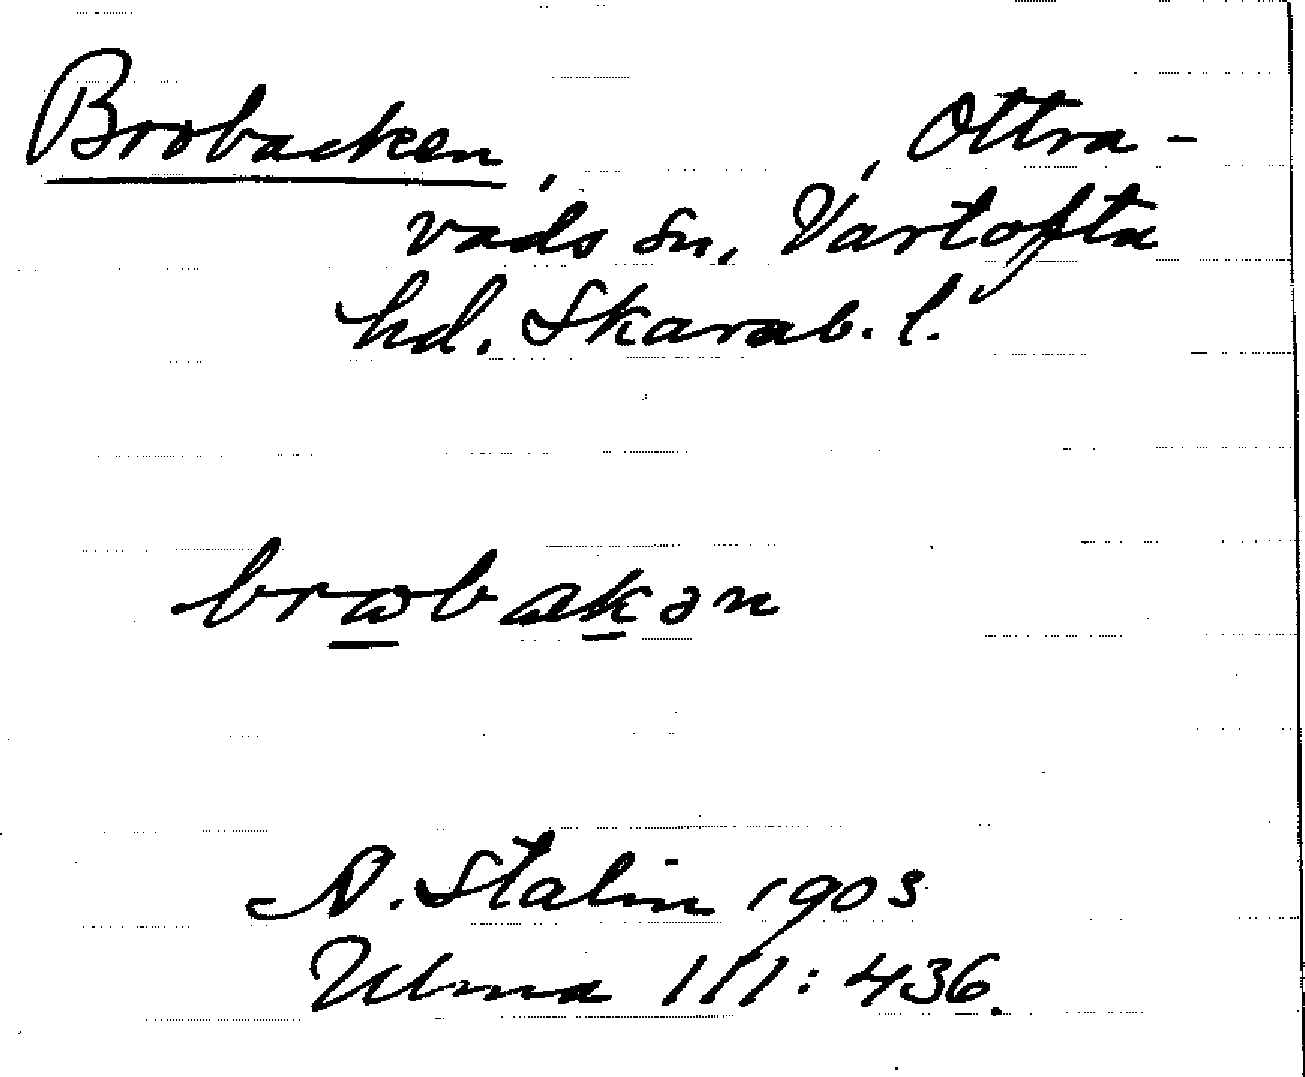 Brobacken, , Ottra-
vads sn, Vartofta
hd. Skarab. l.
brωbakən
A. Stalin 1903
Ulma 111:436.